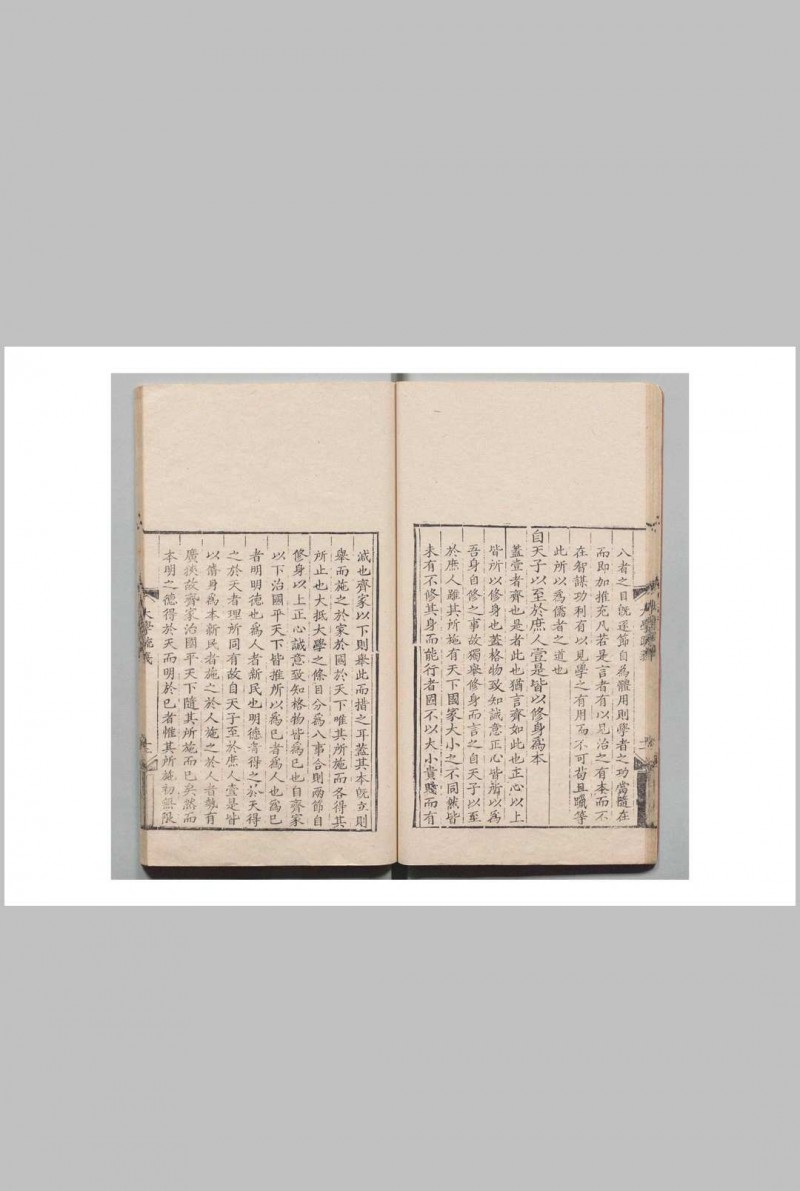 八者之目既遞節自為體用則學者之功當隨在
而即加推充凡若是言者有以見治之有本而不
在智謀功利有以見學之有用而不可苟且躐等
此所以為儒者之道也
自天子以至於庶人壹是皆以修身為本
蓋壹者齊也是者此也猶言齊如此也正心以上
皆所以修身也蓋格物致知誠意正心皆所以為
吾身自修之事故獨舉修身而言之自天子以至
於庶人雖其所施有天下國家大小之不同然皆
未有不修其身而能行者固不以大小貴賤而有
減也齊家以下則舉此而措之耳蓋其本既立則
舉而施之於家於國於天下唯其所施而各得其
所止也大抵大學之條目分為八事合則兩節自
修身以上正心誠意致知格物皆為己也自齊家
以下治國平天下皆推所以為己者為人也為己
者明明德也為人者新民也明德者得之於天得
之於天者理所同有故自天子至於庶人壹是皆
以脩身為本新民者施之於人施之於人者勢有
廣狹故齊家治國平天下隨其所施而已矣然而
本明之德得於天而明於己者惟其所施初無限
大學疏義